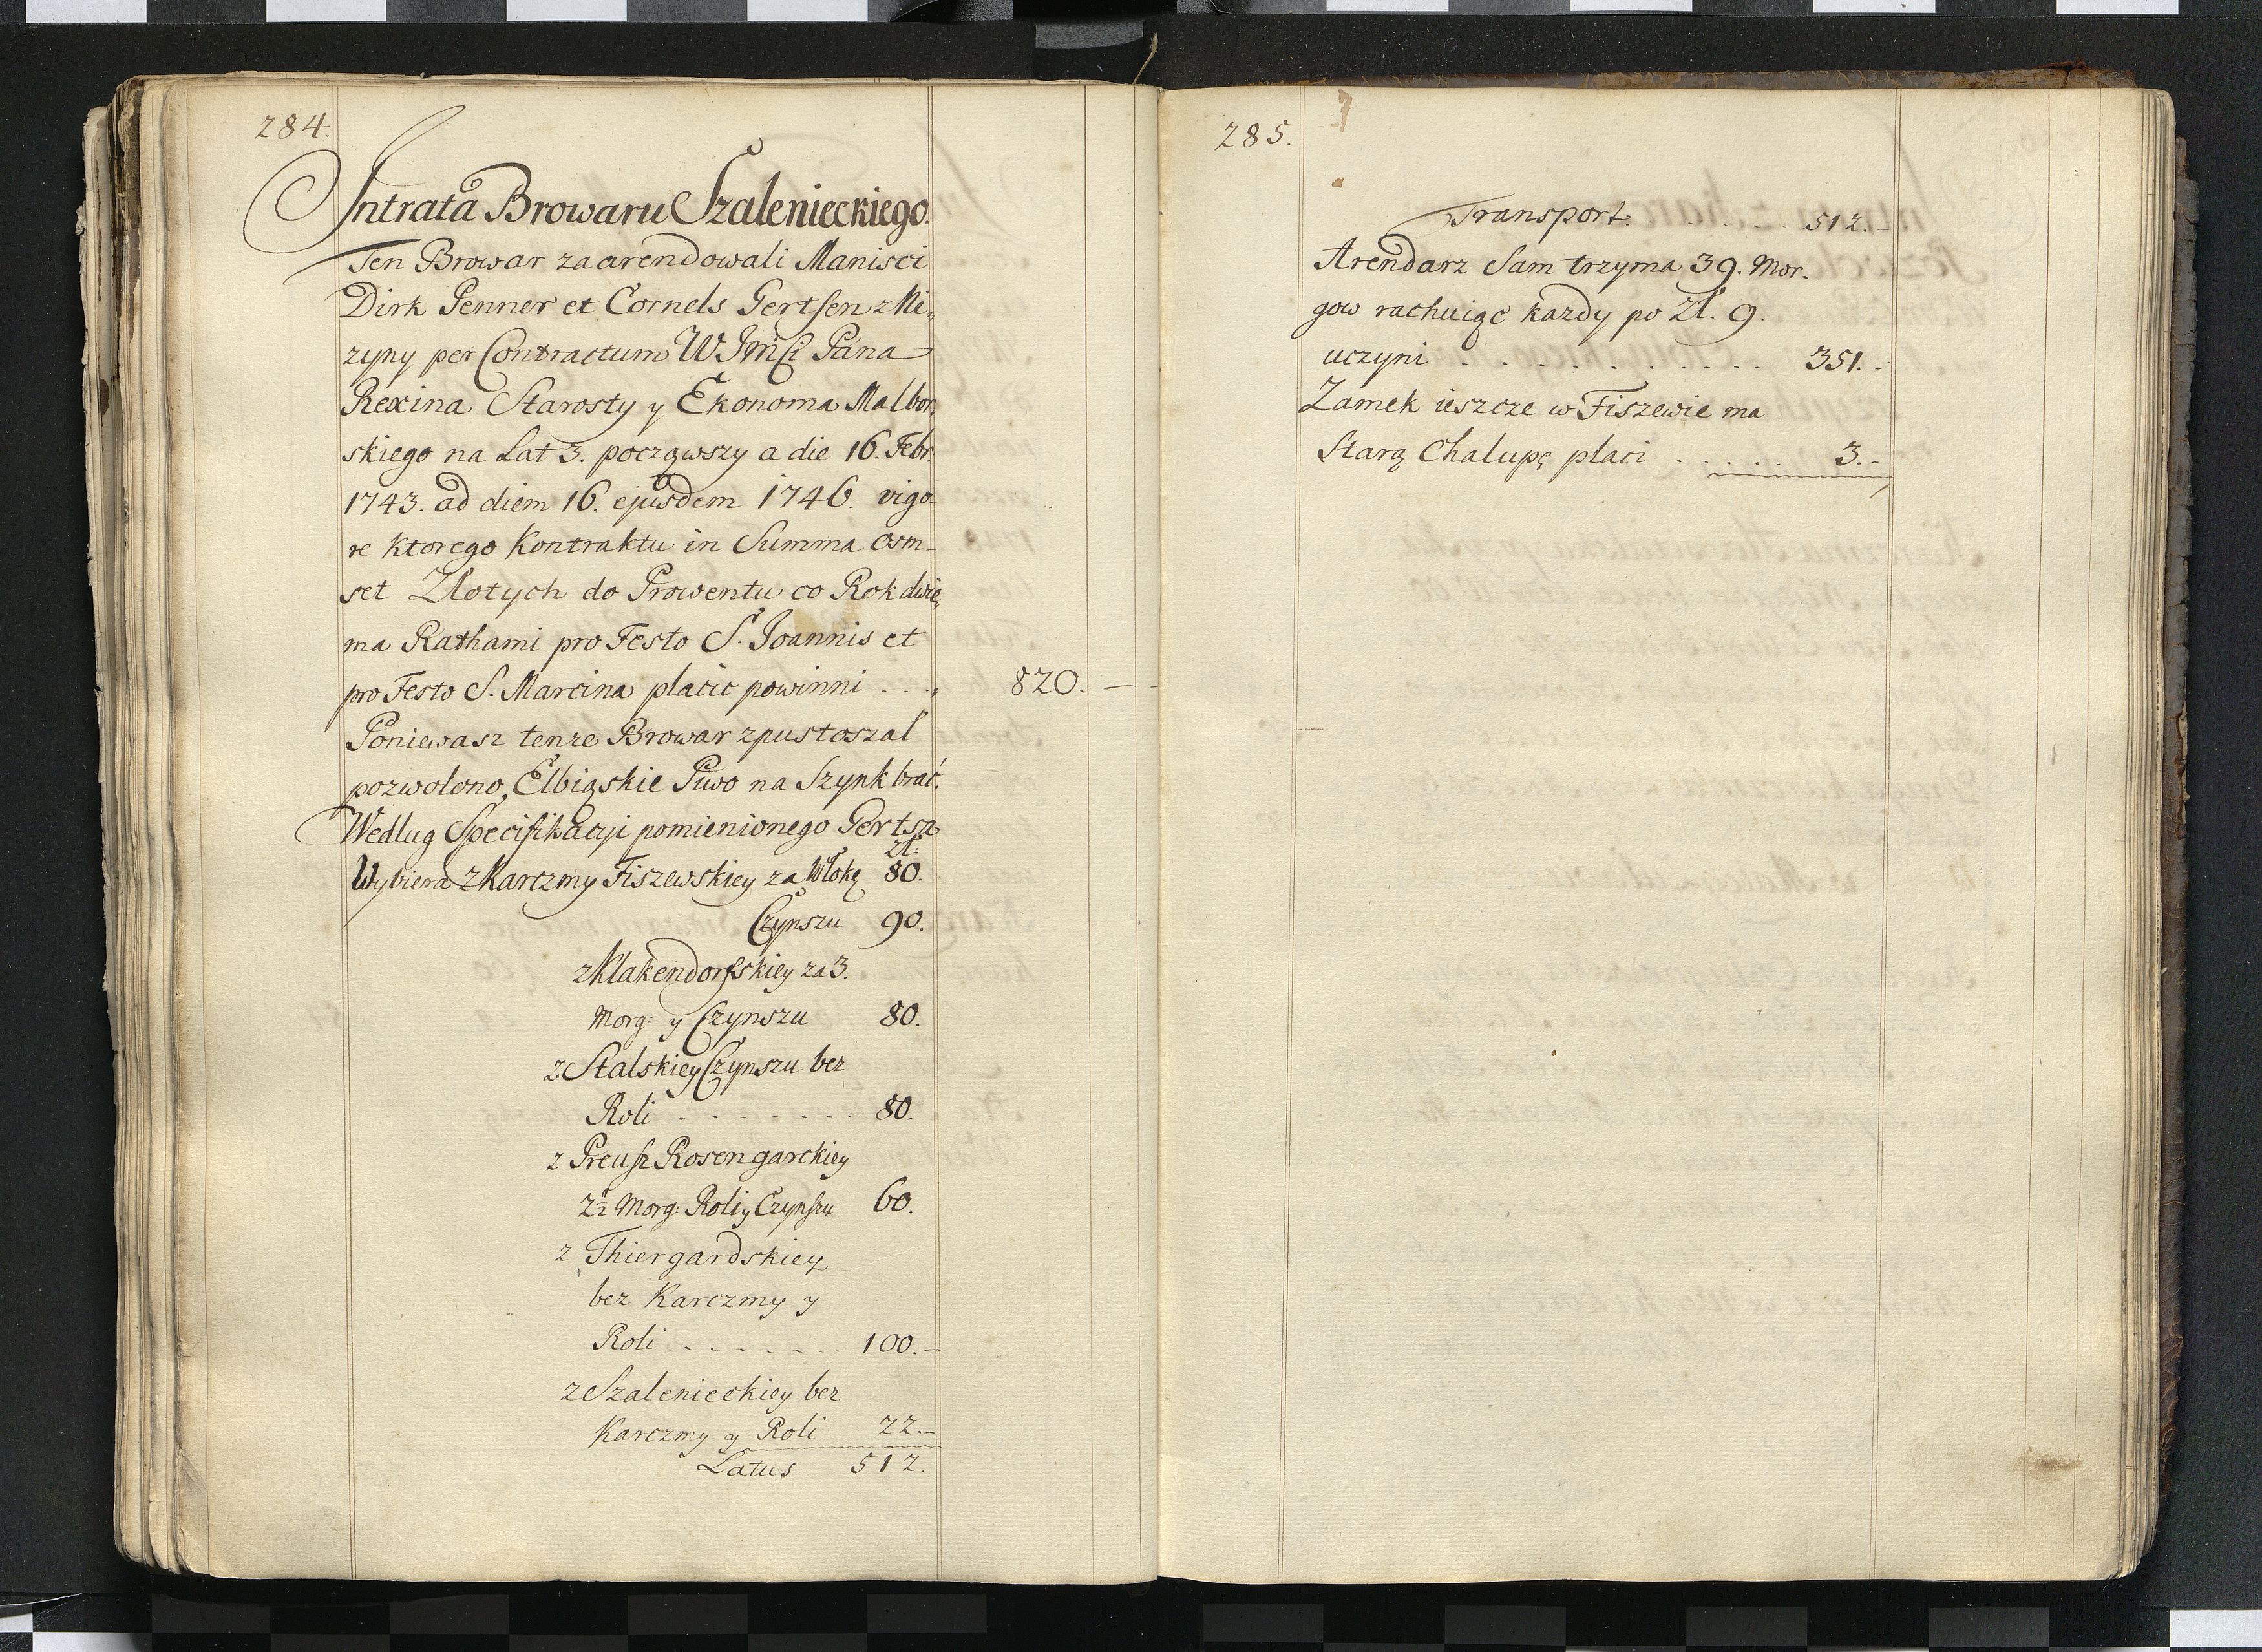 284.
Intrata Browaru Szalenieckiego.
Ten Browar zaarendowali Manisci
Dirk Penner et Cornels Gertsen z Ni„
zyny per Contractum W JMśCi Pana
Rexina Starosty y Ekonoma Malbor„
skiego na Lat 3. począwszy a die 16. Febr:
1743. ad diem 16. ejusdem 1746. vigo„
re ktorego Kontraktu in Summa osm„
set Złotych do Prowentu co Rok dwie„
ma Rathami pro Festo S. Joannis et
pro Festo S. Marcina płacic powinni . . . 820. —
Poniewasz tenze Browar zpustoszał
pozwolono, Elbiąskie Piwo na Szynk brać.
Wedlug Specifikacyi pomienionego Gertsa
zł:
Wybiera z Karczmy Fiszewskiey za Włokę 80.
Czynszu 90.
z Klakendorfskiey za 3.
Morg: y Czynszu 80.
z Stalskiey Czynszu bez
Roli - - - - - - - 80.
z Preusz Rosengarckiey
2½ Morg: Roli y Czynszu 60.
z Thiergardskiey
bez Karczmy y
Roli . . . . . . . 100.—
z Szalenieckiey bez
Karczmy y Roli 22.—
Latus 512.
285.
Transport. . . . . . 512.—
Arendarz Sam trzyma 39. Mor„
gow rachuiąc kazdy po Zł. 9.
uczyni . . . . . . . . . . . 351. -
Zamek ieszcze w Fiszewie ma
Starą Chalupę płaci . . . . . 3.-